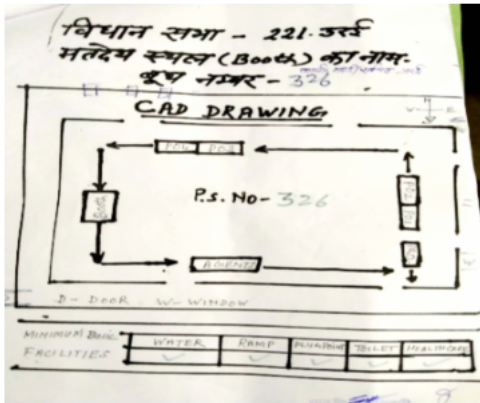 विधान सभा - 221. उरई
मतदेय स्थल (Booth) का नाम:
बूथ नम्बर - 326
CAD DRAWING
PO4 PO3
BOOTH
P.S. NO- 326
AGENTS
D - DOOR W - WINDOW
MINIMUM BASIC FACILITIES
WATER RAMP TOILET